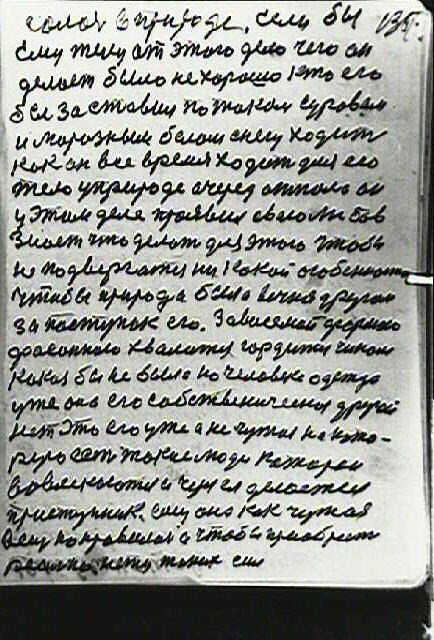 голое в природе. если бы 135.
ему телу от этого дело чего он
делает было не хорошо кто его
бы заставил по таким суровым
и морозным белом снегу ходить
как он все время ходит для его
тело у природе очередь он
у этом деле проявил свою любовь
знает что делать для этого чтобы
не подвергатся ни какой особенности
чтобы природа была вечно другом
за поступок его. Завоеной формою
фасонного хвалится гордится чином
какая бы не была на человеке одежда
уже она его собственическая другой
нет это его уже а не чужая на кото-
рую есть такие люди которые
вовлекаются и через делается
приступник. ему она как чужая
вещ понравилась чтобы приобрести
нету таких сил